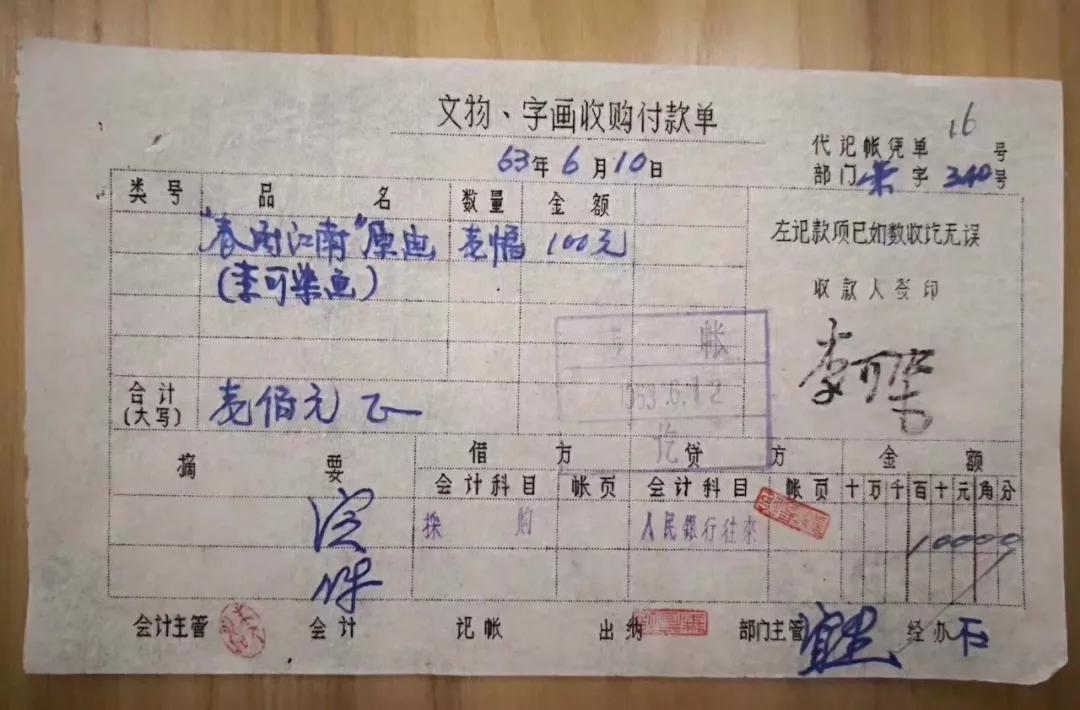 文物、字画收购付款单
16
代记帐凭单 号
63年6月10日
部门 荣 字 340号
类号 品名 数量 金额
"春雨江南"原画 壹幅 100元
(李可染画)
左记款项已如数收讫无误
收款人签印
李可染
帐
1963.6.12
讫
合计
(大写)
壹佰元正
摘要 借方 贷方 金额
会计科目 帐页 会计科目 帐页 十万千百十元角分
採购 人民银行往來 10000
会计主管 会计 记帐 出纳 部门主管 经办